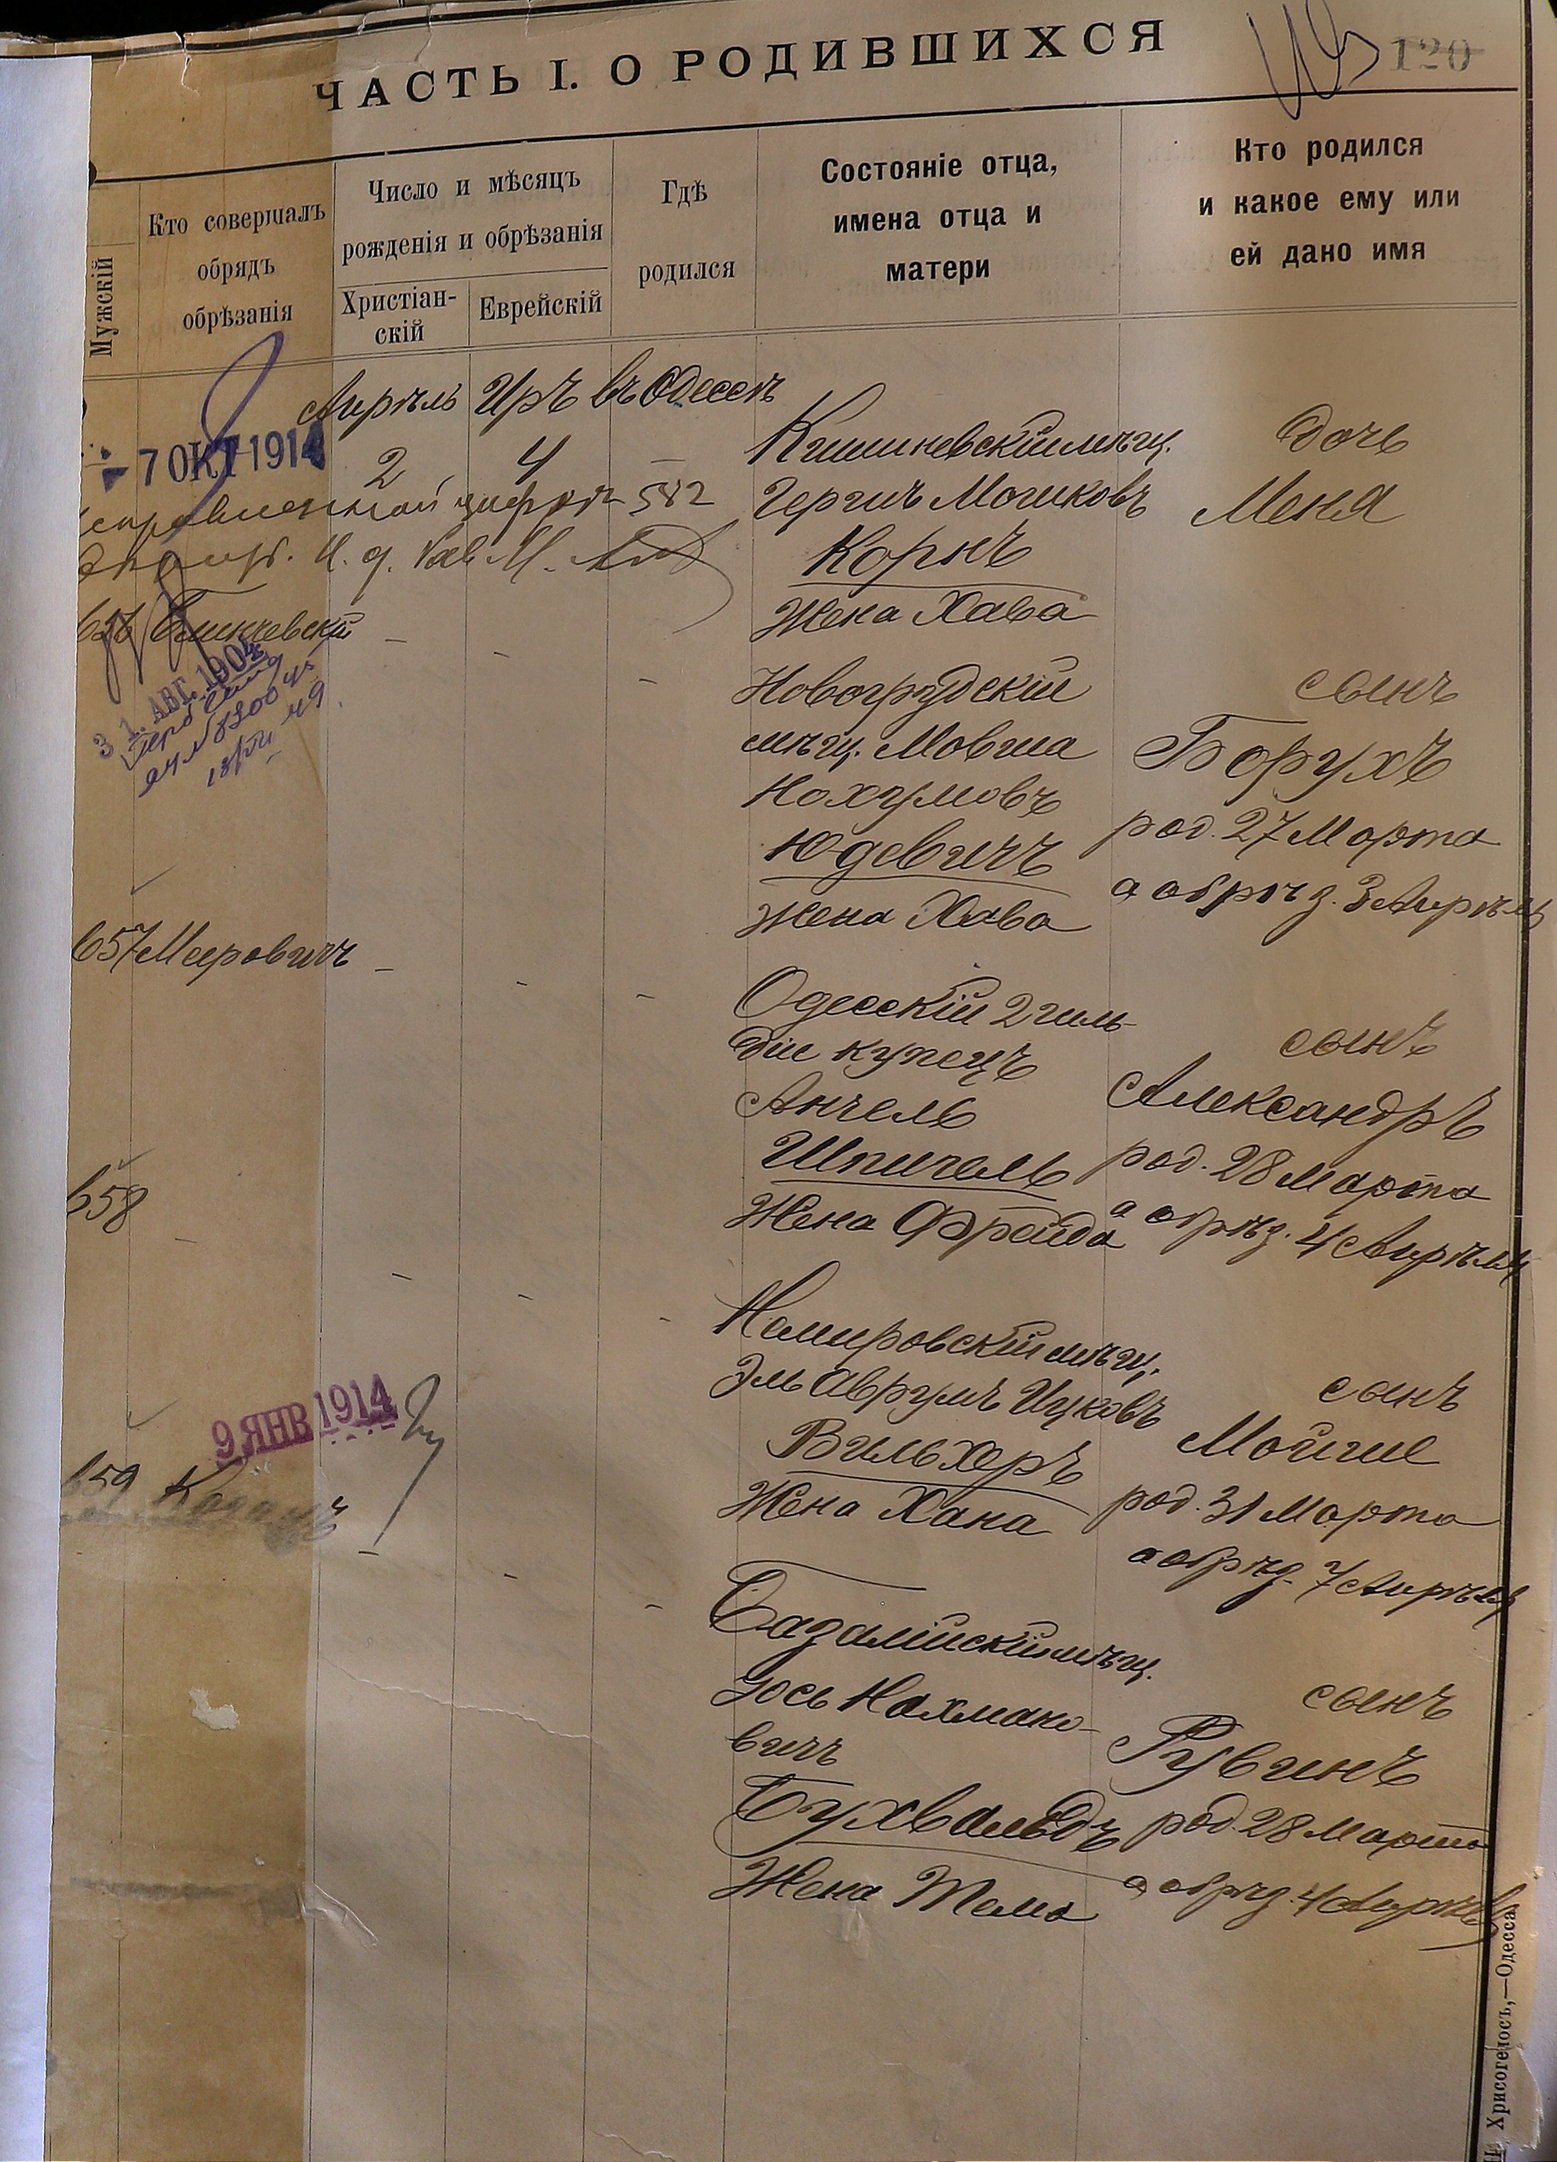 120
ЧАСТЬ I. О РОДИВШИХСЯ
Мужскій
Кто совершалъ
обрядъ
обрѣзанія
Число и мѣсяцъ
рожденія и обрѣзанія
Христіан-
скій
Еврейскій
Гдѣ
родился
Состояніе отца,
имена отца и
матери
Кто родился
и какое ему или
ей дано имя
Апрѣль Иръ въ Одессѣ
7 ОКТ 1914
2 4 —
Кишиневскій мѣщ.
Гершъ Мошковъ
Корнъ
Жена Хава
дочь
Меня
цифрѣ 582
656
31. АВГ. 1904
Новогрудскій
мѣщ. Мовша
Нохумовъ
Юдевичъ
жена Хава
сынъ
Борухъ
род. 27 Марта
а обрѣз. 3 Апрѣля
657 Мееровичъ —
Одесскій 2 гиль-
діи купецъ
Анчель
Шпигель
Жена Фрейда
сынъ
Александръ
род. 28 Марта
а обрѣз. 4 Апрѣля
658
Немировскій мѣщ.
Эль Аврумъ Ицковъ
Вильхеръ
Жена Хана
сынъ
Мойше
род. 31 Марта
а обрѣз. 7 Апрѣля
9 ЯНВ 1914
659
Базалійскій мѣщ.
Іось Нахмано-
вичъ
Бухвальдъ
Жена Тема
сынъ
Рувинъ
род. 28 Марта
а обрѣз. 4 Апрѣля
Хрисогелосъ,—Одесса.